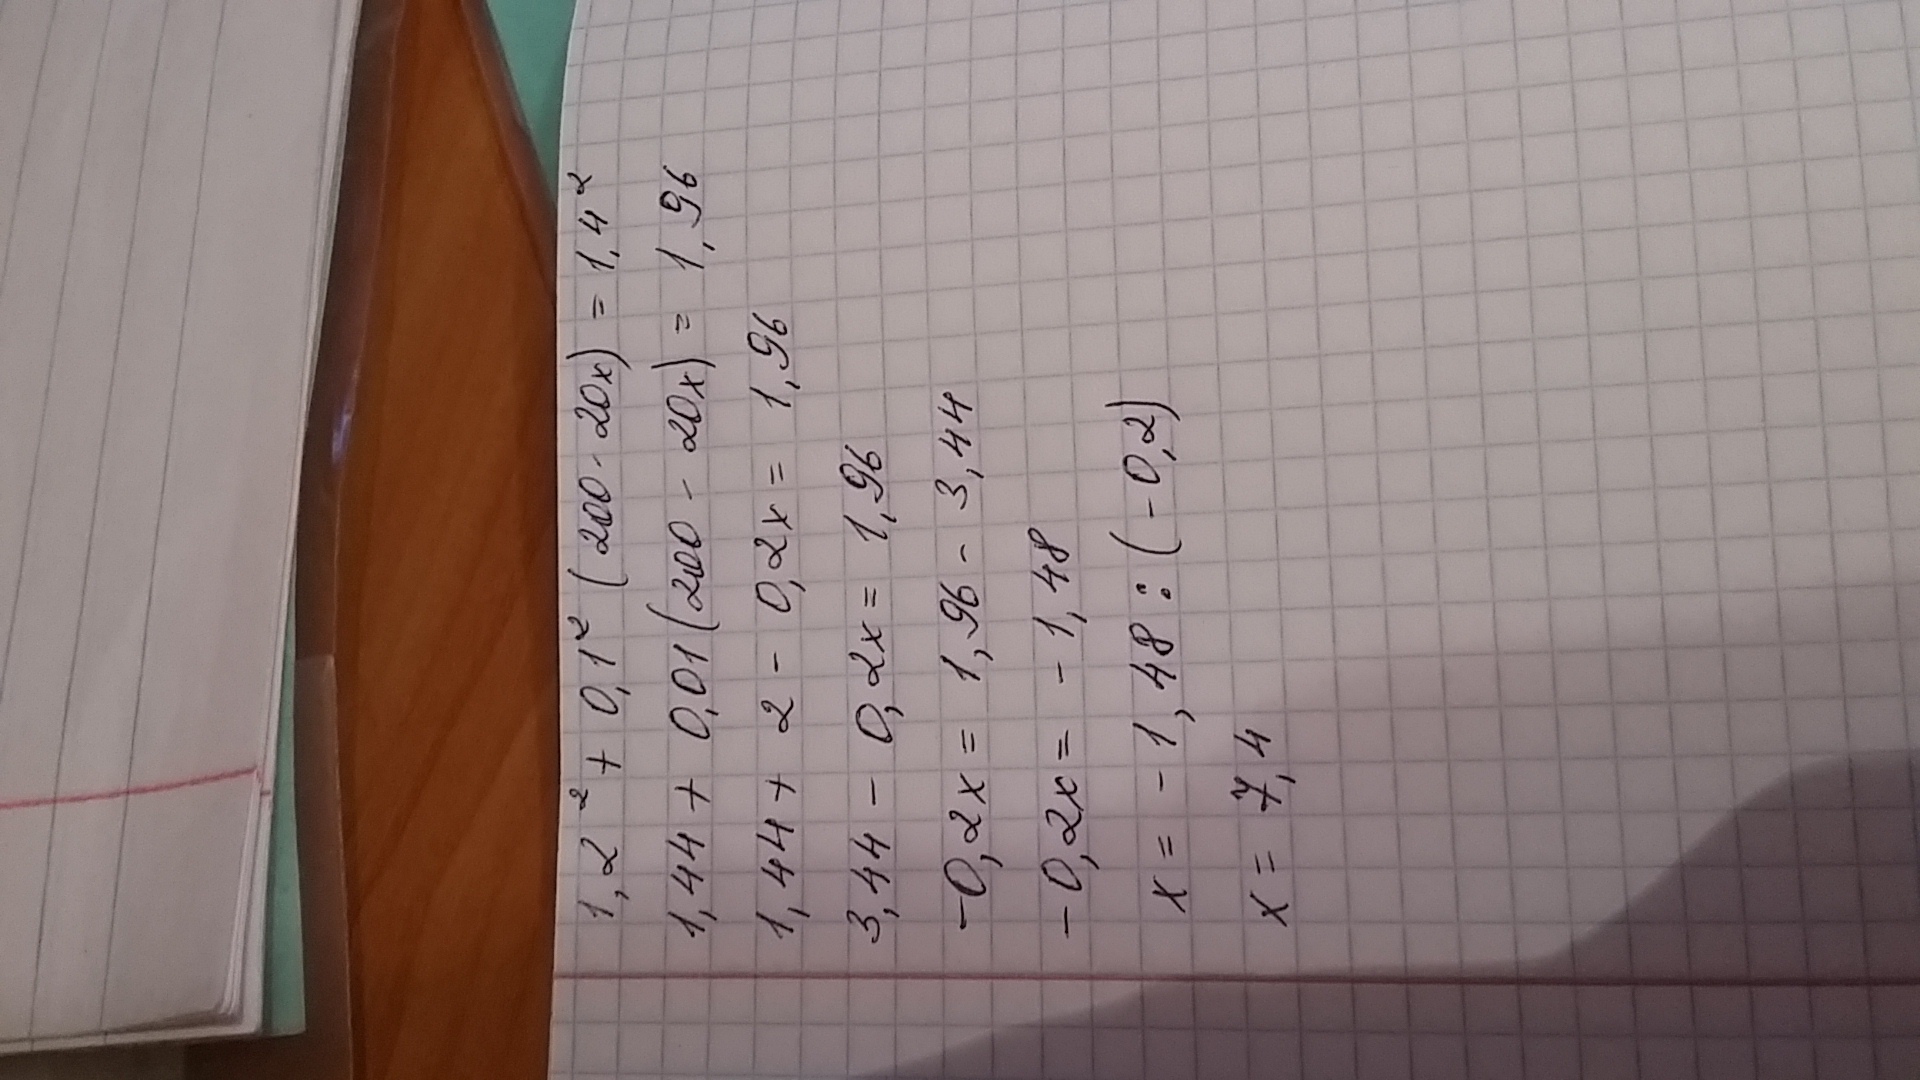 1,2² + 0,1² (200 - 20x) = 1,4²
1,44 + 0,01 (200 - 20x) = 1,96
1,44 + 2 - 0,2x = 1,96
3,44 - 0,2x = 1,96
-0,2x = 1,96 - 3,44
-0,2x = -1,48
x = -1,48 : (-0,2)
x = 7,4